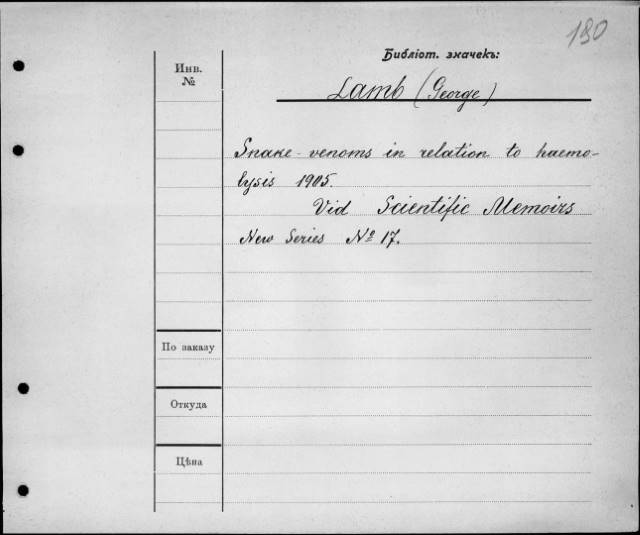 180
Библіот. значекъ:
Инв.
№
Lamb (George)
Snake-venoms in relation to haemo-
lysis 1905.
Vid Scientific Memoirs
New Series № 17.
По заказу
Откуда
Цѣна